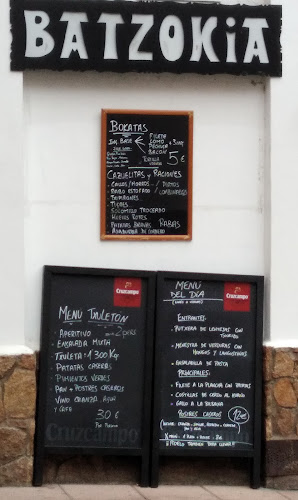 BATZOKIA
BOKATAS
FILETE
LOMO
PECHUGA
BACON
5€
CAZUELITAS Y RACIONES
CALLOS/MORROS
RABO ESTOFADO
TXIPIRONES
TIGRES
SOLOMILLO TROCEADO
HUEVOS ROTOS
PATATAS BRAVAS RABAS
Cruzcampo
MENU TXULETÓN
2 pers
APERITIVO
ENSALADA MIXTA
TXULETA 1'300 Kg
PATATAS CASERAS
PIMIENTOS VERDES
PAN + POSTRES CASEROS
VINO CRIANZA, AGUA
Y CAFE
30€
Cruzcampo
Cruzcampo
MENÚ
DEL DÍA
ENTRANTES:
PUTXERA DE LENTEJAS CON
MENESTRA DE VERDURAS CON
HONGOS Y LANGOSTINOS
ENSALADILLA DE PASTA
PRINCIPALES:
FILETE A LA PLANCHA CON PATATAS
COSTILLAS DE CERDO AL HORNO
GALLO A LA
POSTRES CASEROS
12€